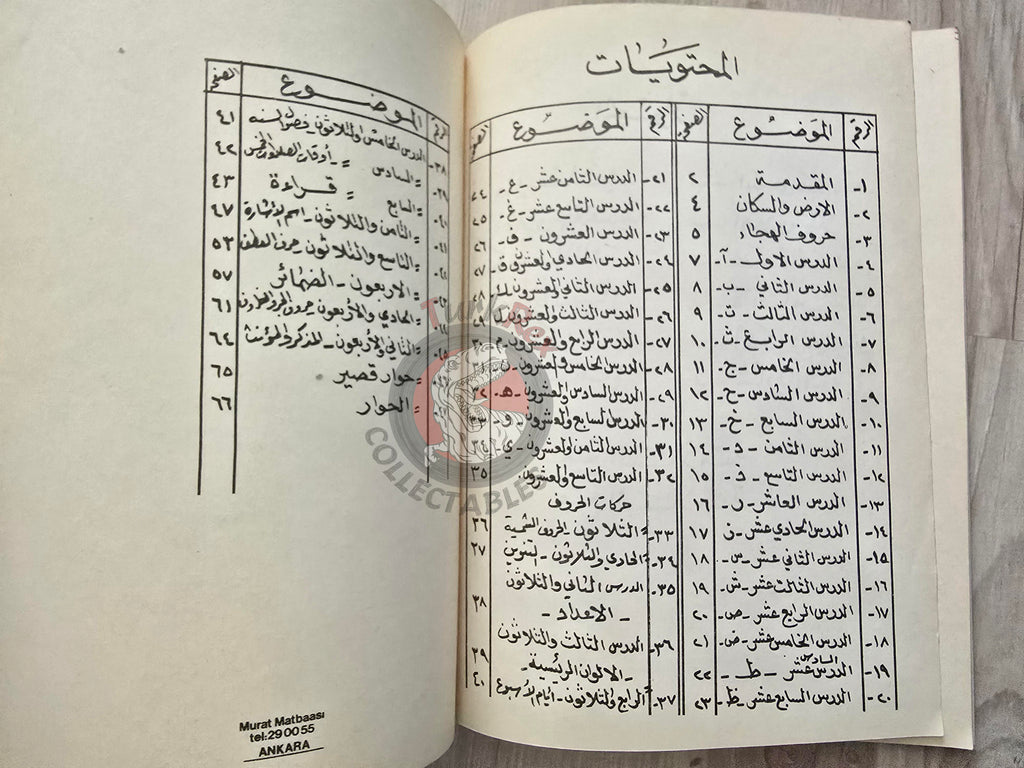 المحتويات
الرقم الموضوع الصفحة
١- المقدمة ٢
٢- الارض والسكان ٤
٣- حروف الهجاء ٥
٤- الدرس الاولى -آ- ٧
٥- الدرس الثاني -ب- ٨
٦- الدرس الثالث -ت- ٩
٧- الدرس الرابع -ث- ١٠
٨- الدرس الخامس -ج- ١١
٩- الدرس السادس -ح- ١٢
١٠- الدرس السابع -خ- ١٣
١١- الدرس الثامن -د- ١٤
١٢- الدرس التاسع -ذ- ١٥
١٣- الدرس العاشر -ر- ١٦
١٤- الدرس الحادي عشر -ز- ١٧
١٥- الدرس الثاني عشر -س- ١٨
١٦- الدرس الثالث عشر -ش- ١٩
١٧- الدرس الرابع عشر -ص- ٢٠
١٨- الدرس الخامس عشر -ض- ٢١
١٩- الدرس السادس عشر -ط- ٢٢
٢٠- الدرس السابع عشر -ظ- ٢٣
الرقم الموضوع الصفحة
٢١- الدرس الثامن عشر -ع- ٢٤
٢٢- الدرس التاسع عشر -غ- ٢٥
٢٣- الدرس العشرون -ف- ٢٦
٢٤- الدرس الحادي والعشرون ق- ٢٧
٢٥- الدرس الثاني والعشرون ك- ٢٨
٢٦- الدرس الثالث والعشرون ل-
٢٧- الدرس الرابع والعشرون -م- ٣٠
٢٨- الدرس الخامس والعشرون -ن-
٢٩- الدرس السادس والعشرون -هـ- ٣٢
٣٠- الدرس السابع والعشرون -و-
٣١- الدرس الثامن والعشرون -ي- ٣٤
٣٢- الدرس التاسع والعشرون ٣٥
حركات الحروف
٣٣- = الثلاثون - الحروف الشمسية ٣٦
٣٤- = الحادي والثلاثون - التنوين ٣٧
٣٥- الدرس الثاني والثلاثون
- الاعداد - ٣٨
٣٦- الدرس الثالث والثلاثون
- الالوان الرئيسية ٣٩
٣٧- = الرابع والثلاثون - ايام الأسبوع ٤٠
الرقم الموضوع الصفحة
٣٨- الدرس الخامس والثلاثون - فصول السنه ٤١
٣٩- = السادس = - أوقات الصلوات الخمس ٤٢
٤٠- = السابع = قراءة ٤٣
٤١- = الثامن والثلاثون - اسم الإشارة ٤٧
٤٢- = التاسع والثلاثون - حرف العطف ٥٣
٤٣- = الاربعون - الضمائر ٥٧
= الحادي والأربعون - ٦١
= الثاني والأربعون - المذكر والمؤنث ٦٤
= حوار قصير ٦٥
= الحوار ٦٦
Murat Matbaası
tel:29 00 55
ANKARA
Turk Rex
COLLECTABLES